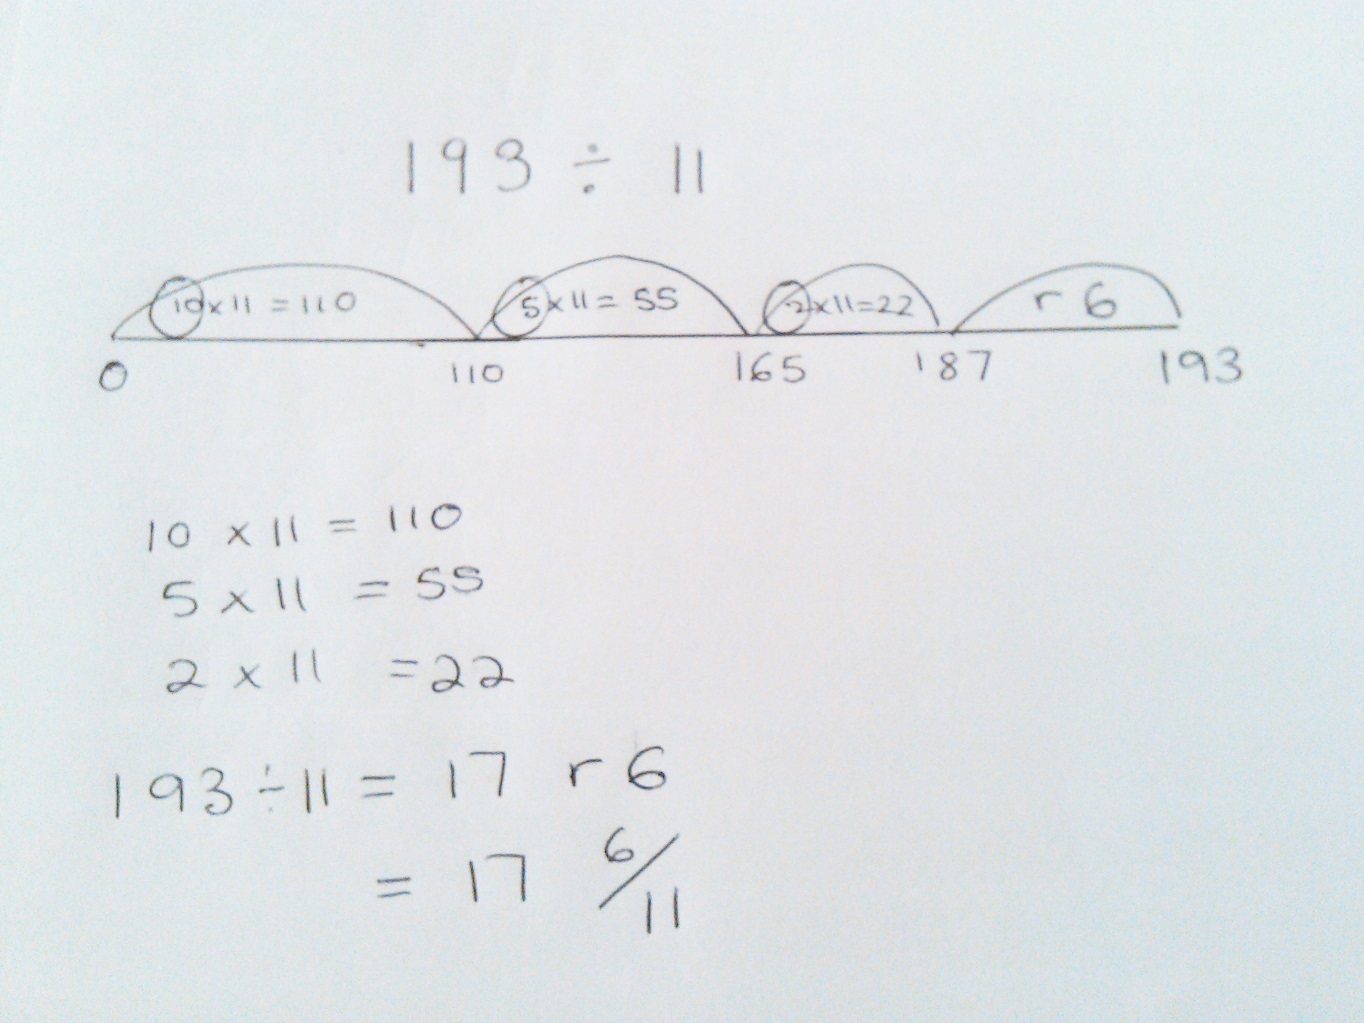 193 ÷ 11
10 x 11 = 110 5 x 11 = 55 2 x 11 = 22 r 6
0 110 165 187 193
10 x 11 = 110
5 x 11 = 55
2 x 11 = 22
193 ÷ 11 = 17 r 6
= 17 6/11